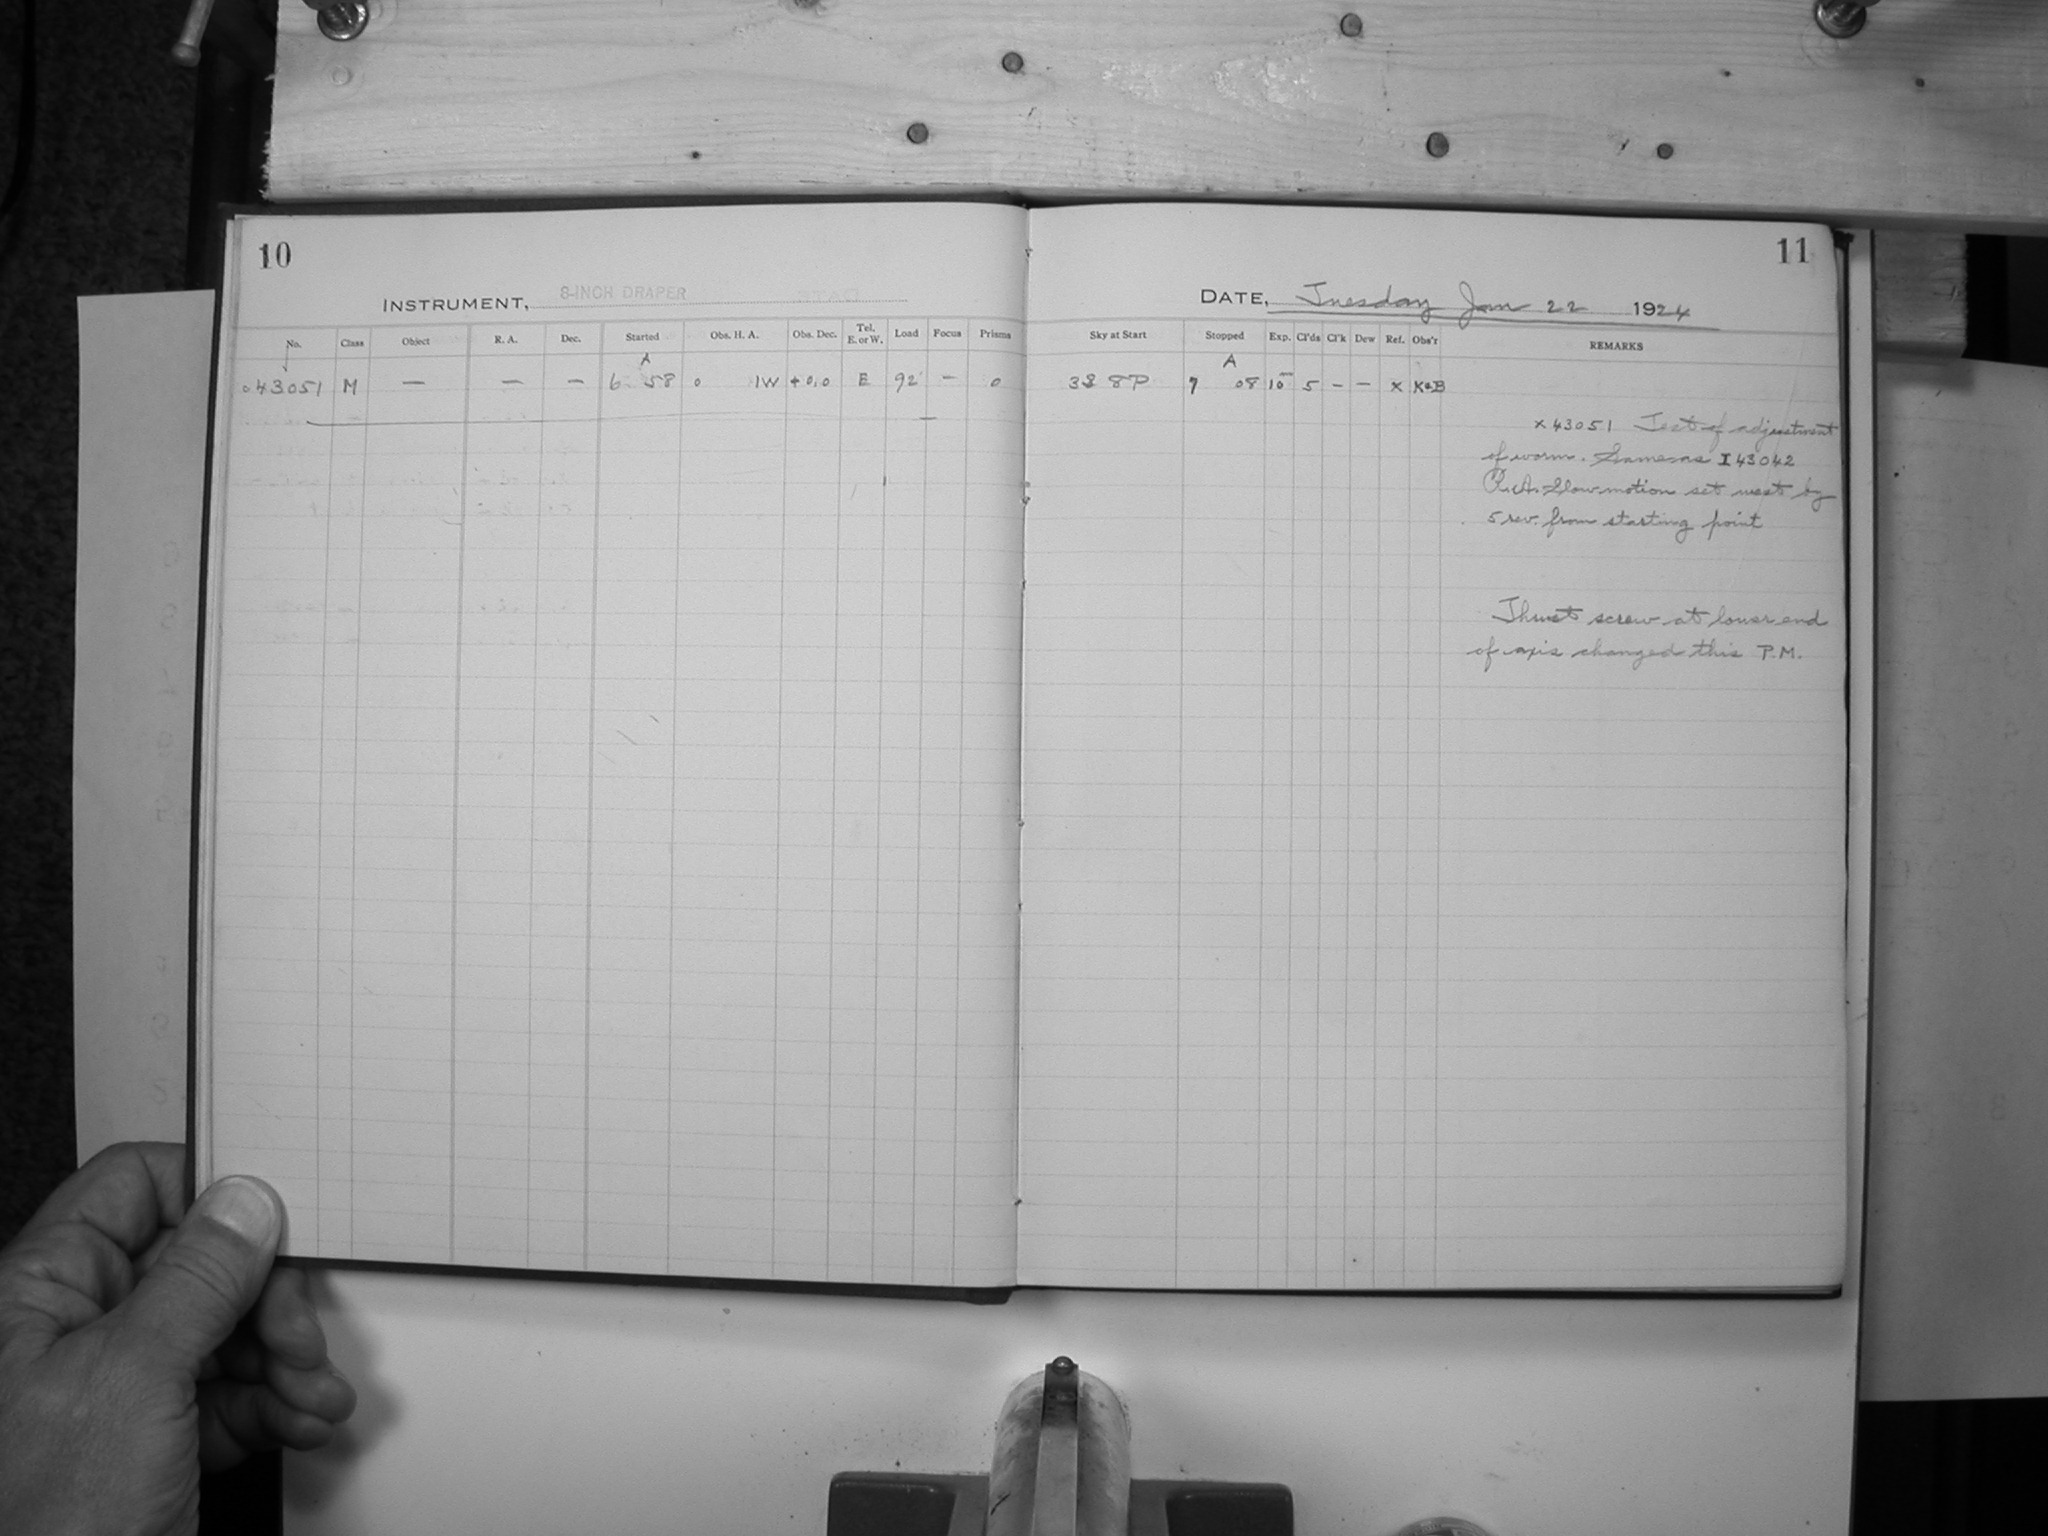 10
11
INSTRUMENT, 8-INCH DRAPER
DATE, Tuesday Jan 22 1924
No. Class Object R. A. Dec. Started Obs. H. A. Obs. Dec. Tel. E. or W. Load Focus Prisms Sky at Start Stopped Exp. Cl'ds Cl'k Dew Ref. Obs'r REMARKS
A A
043051 M — — — 6 58 0 1W +0.0 E 92 — 0 3S 8P 7 08 10m 5 — — x K&B
x 43051 Test of adjustment
of worm. Same as I 43042
R.A. Slow motion set west by
5 rev. from starting point
Thrust screw at lower end
of axis changed this P.M.